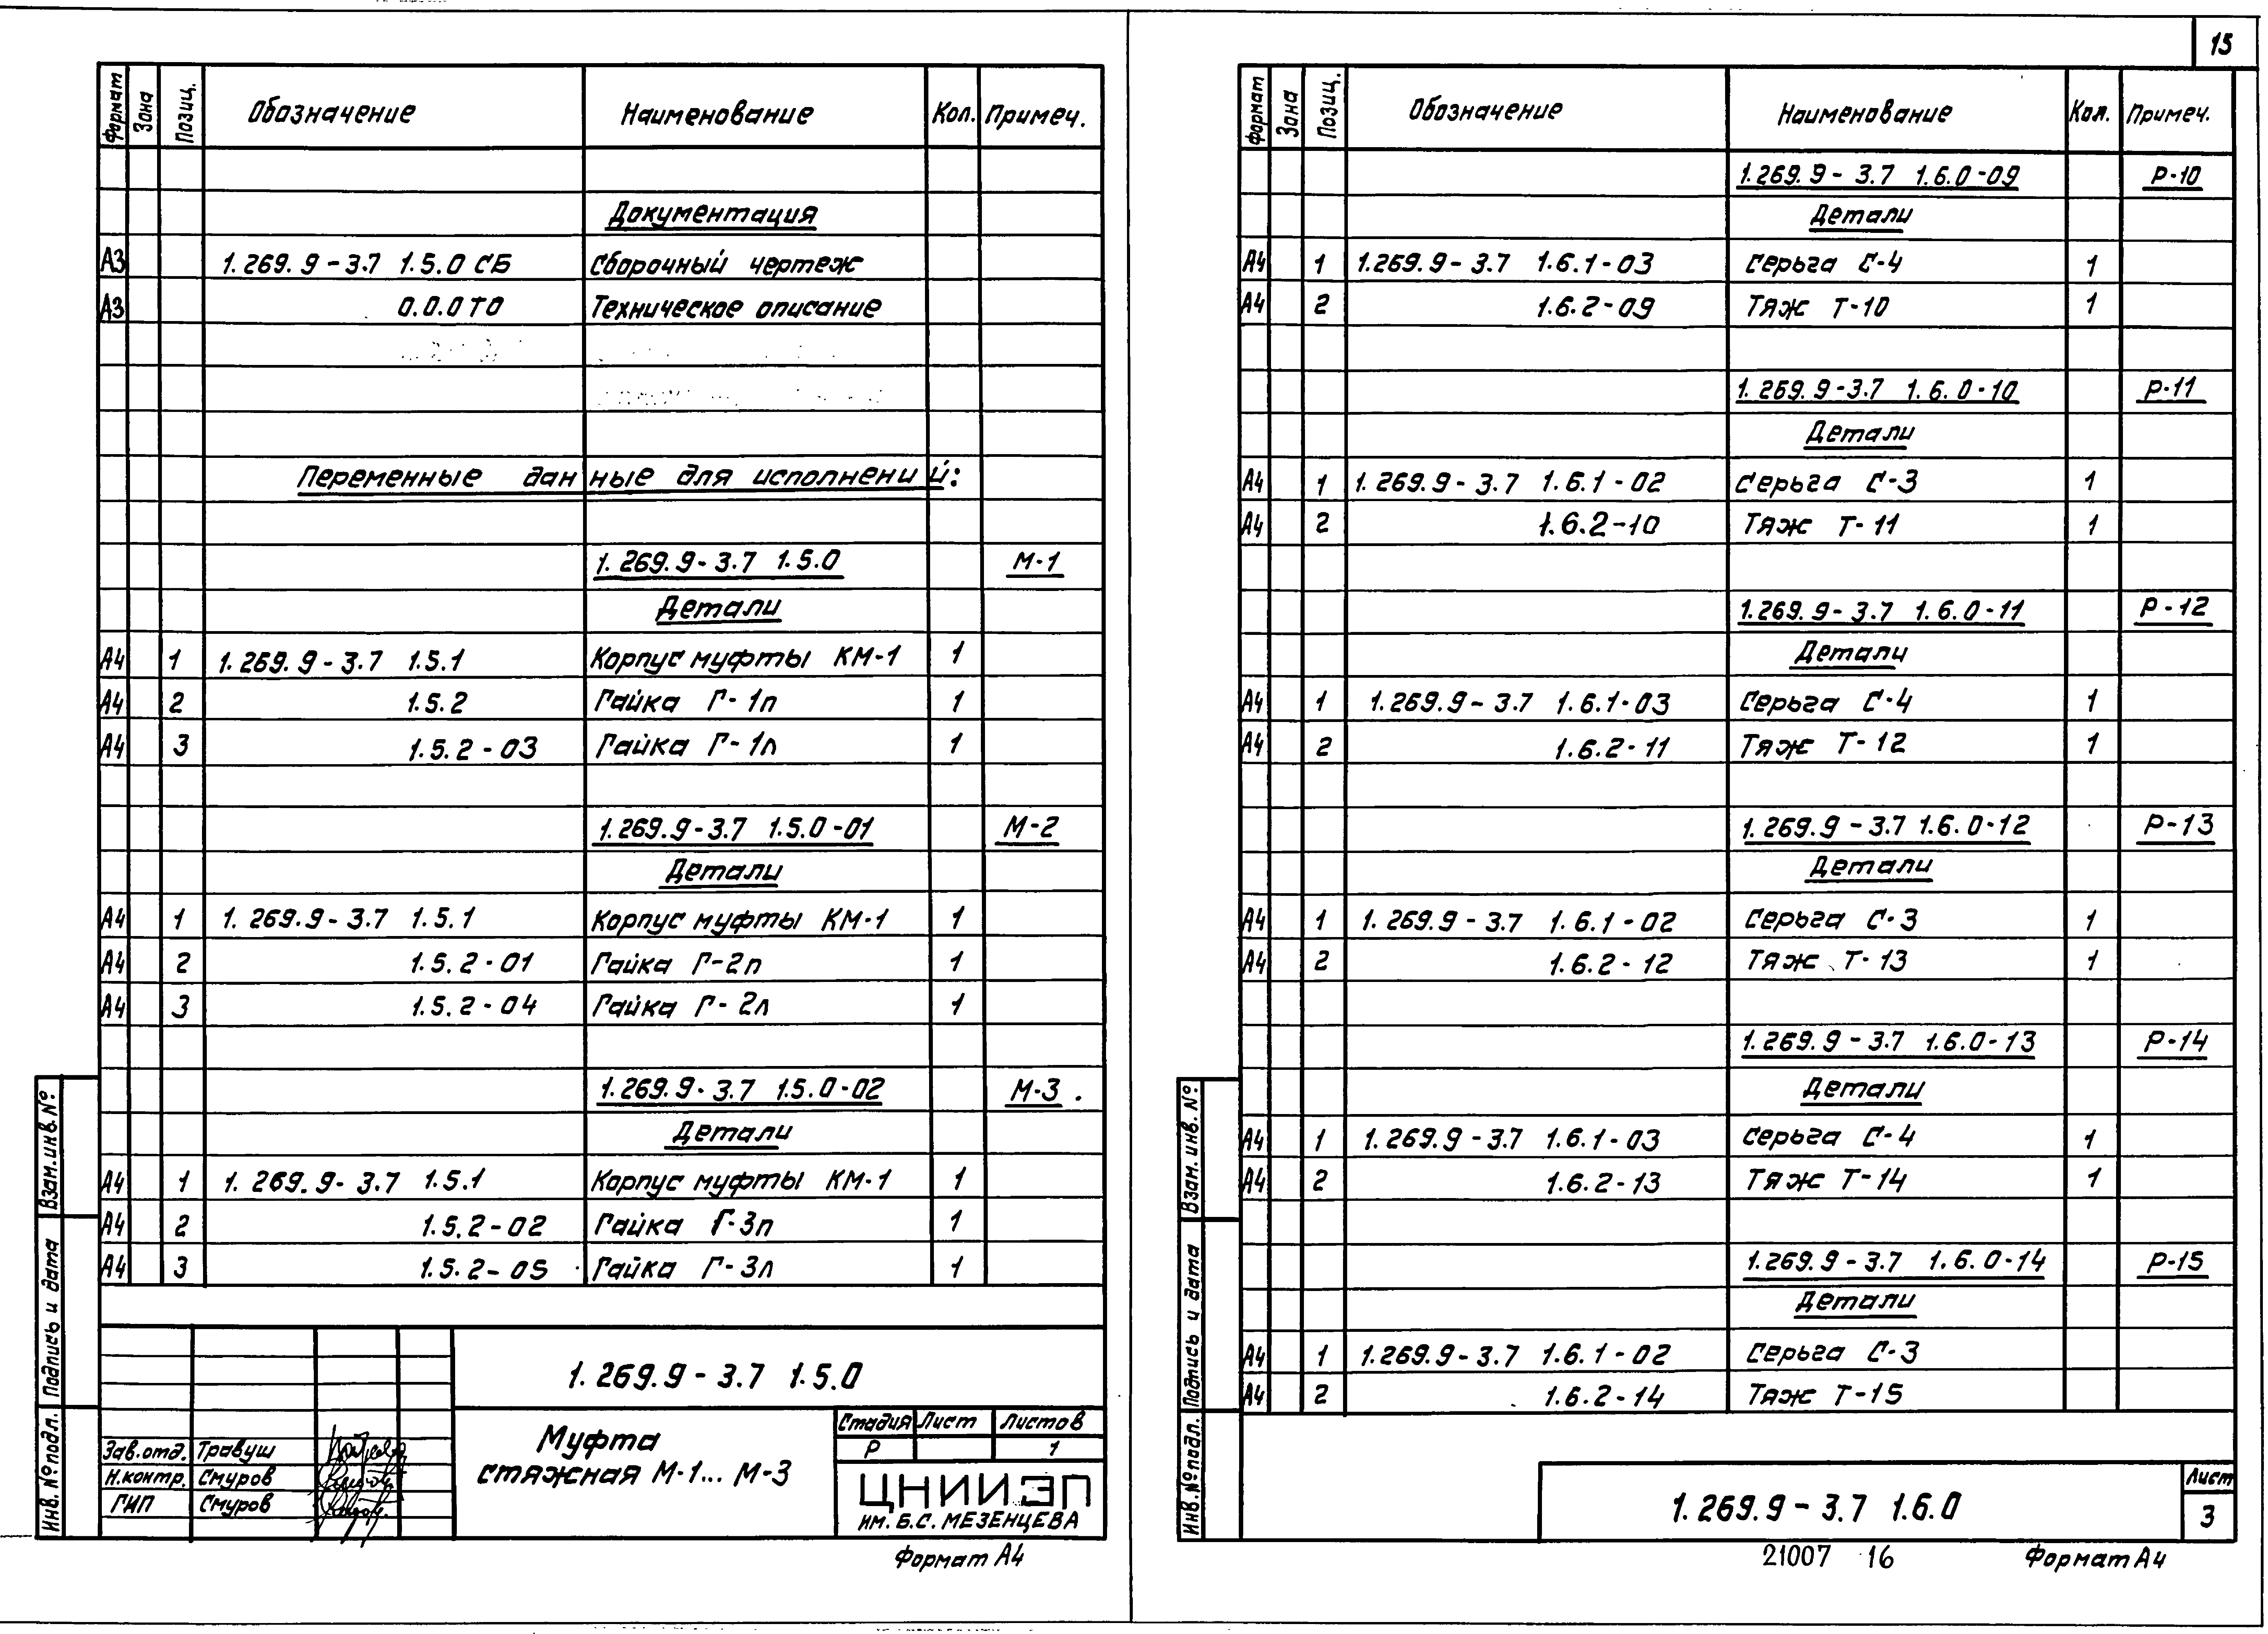 15
Формат Зона Позиц. Обозначение Наименование Кол. Примеч.
Документация
А3 1.269.9-3.7 1.5.0 СБ Сборочный чертеж
А3 0.0.0 ТО Техническое описание
Переменные данные для исполнений:
1.269.9-3.7 1.5.0 М-1
Детали
А4 1 1.269.9-3.7 1.5.1 Корпус муфты КМ-1 1
А4 2 1.5.2 Гайка Г-1п 1
А4 3 1.5.2-03 Гайка Г-1л 1
1.269.9-3.7 1.5.0-01 М-2
Детали
А4 1 1.269.9-3.7 1.5.1 Корпус муфты КМ-1 1
А4 2 1.5.2-01 Гайка Г-2п 1
А4 3 1.5.2-04 Гайка Г-2л 1
1.269.9-3.7 1.5.0-02 М-3
Детали
А4 1 1.269.9-3.7 1.5.1 Корпус муфты КМ-1 1
А4 2 1.5.2-02 Гайка Г-3п 1
А4 3 1.5.2-05 Гайка Г-3л 1
Взам.инв.№
Подпись и дата
Инв.№подл.
1.269.9-3.7 1.5.0
Муфта
стяжная М-1... М-3
Стадия Лист Листов
Р 1
Зав.отд. Травуш
Н.контр. Смуров
ГИП Смуров
ЦНИИЭП
им. Б.С. МЕЗЕНЦЕВА
Формат А4
Формат Зона Позиц. Обозначение Наименование Кол. Примеч.
1.269.9-3.7 1.6.0-09 Р-10
Детали
А4 1 1.269.9-3.7 1.6.1-03 Серьга С-4 1
А4 2 1.6.2-09 Тяж Т-10 1
1.269.9-3.7 1.6.0-10 Р-11
Детали
А4 1 1.269.9-3.7 1.6.1-02 Серьга С-3 1
А4 2 1.6.2-10 Тяж Т-11 1
1.269.9-3.7 1.6.0-11 Р-12
Детали
А4 1 1.269.9-3.7 1.6.1-03 Серьга С-4 1
А4 2 1.6.2-11 Тяж Т-12 1
1.269.9-3.7 1.6.0-12 Р-13
Детали
А4 1 1.269.9-3.7 1.6.1-02 Серьга С-3 1
А4 2 1.6.2-12 Тяж Т-13 1
1.269.9-3.7 1.6.0-13 Р-14
Детали
А4 1 1.269.9-3.7 1.6.1-03 Серьга С-4 1
А4 2 1.6.2-13 Тяж Т-14 1
1.269.9-3.7 1.6.0-14 Р-15
Детали
А4 1 1.269.9-3.7 1.6.1-02 Серьга С-3
А4 2 1.6.2-14 Тяж Т-15
Взам.инв.№
Подпись и дата
Инв.№подл.
1.269.9-3.7 1.6.0
Лист
3
21007 16
Формат А4